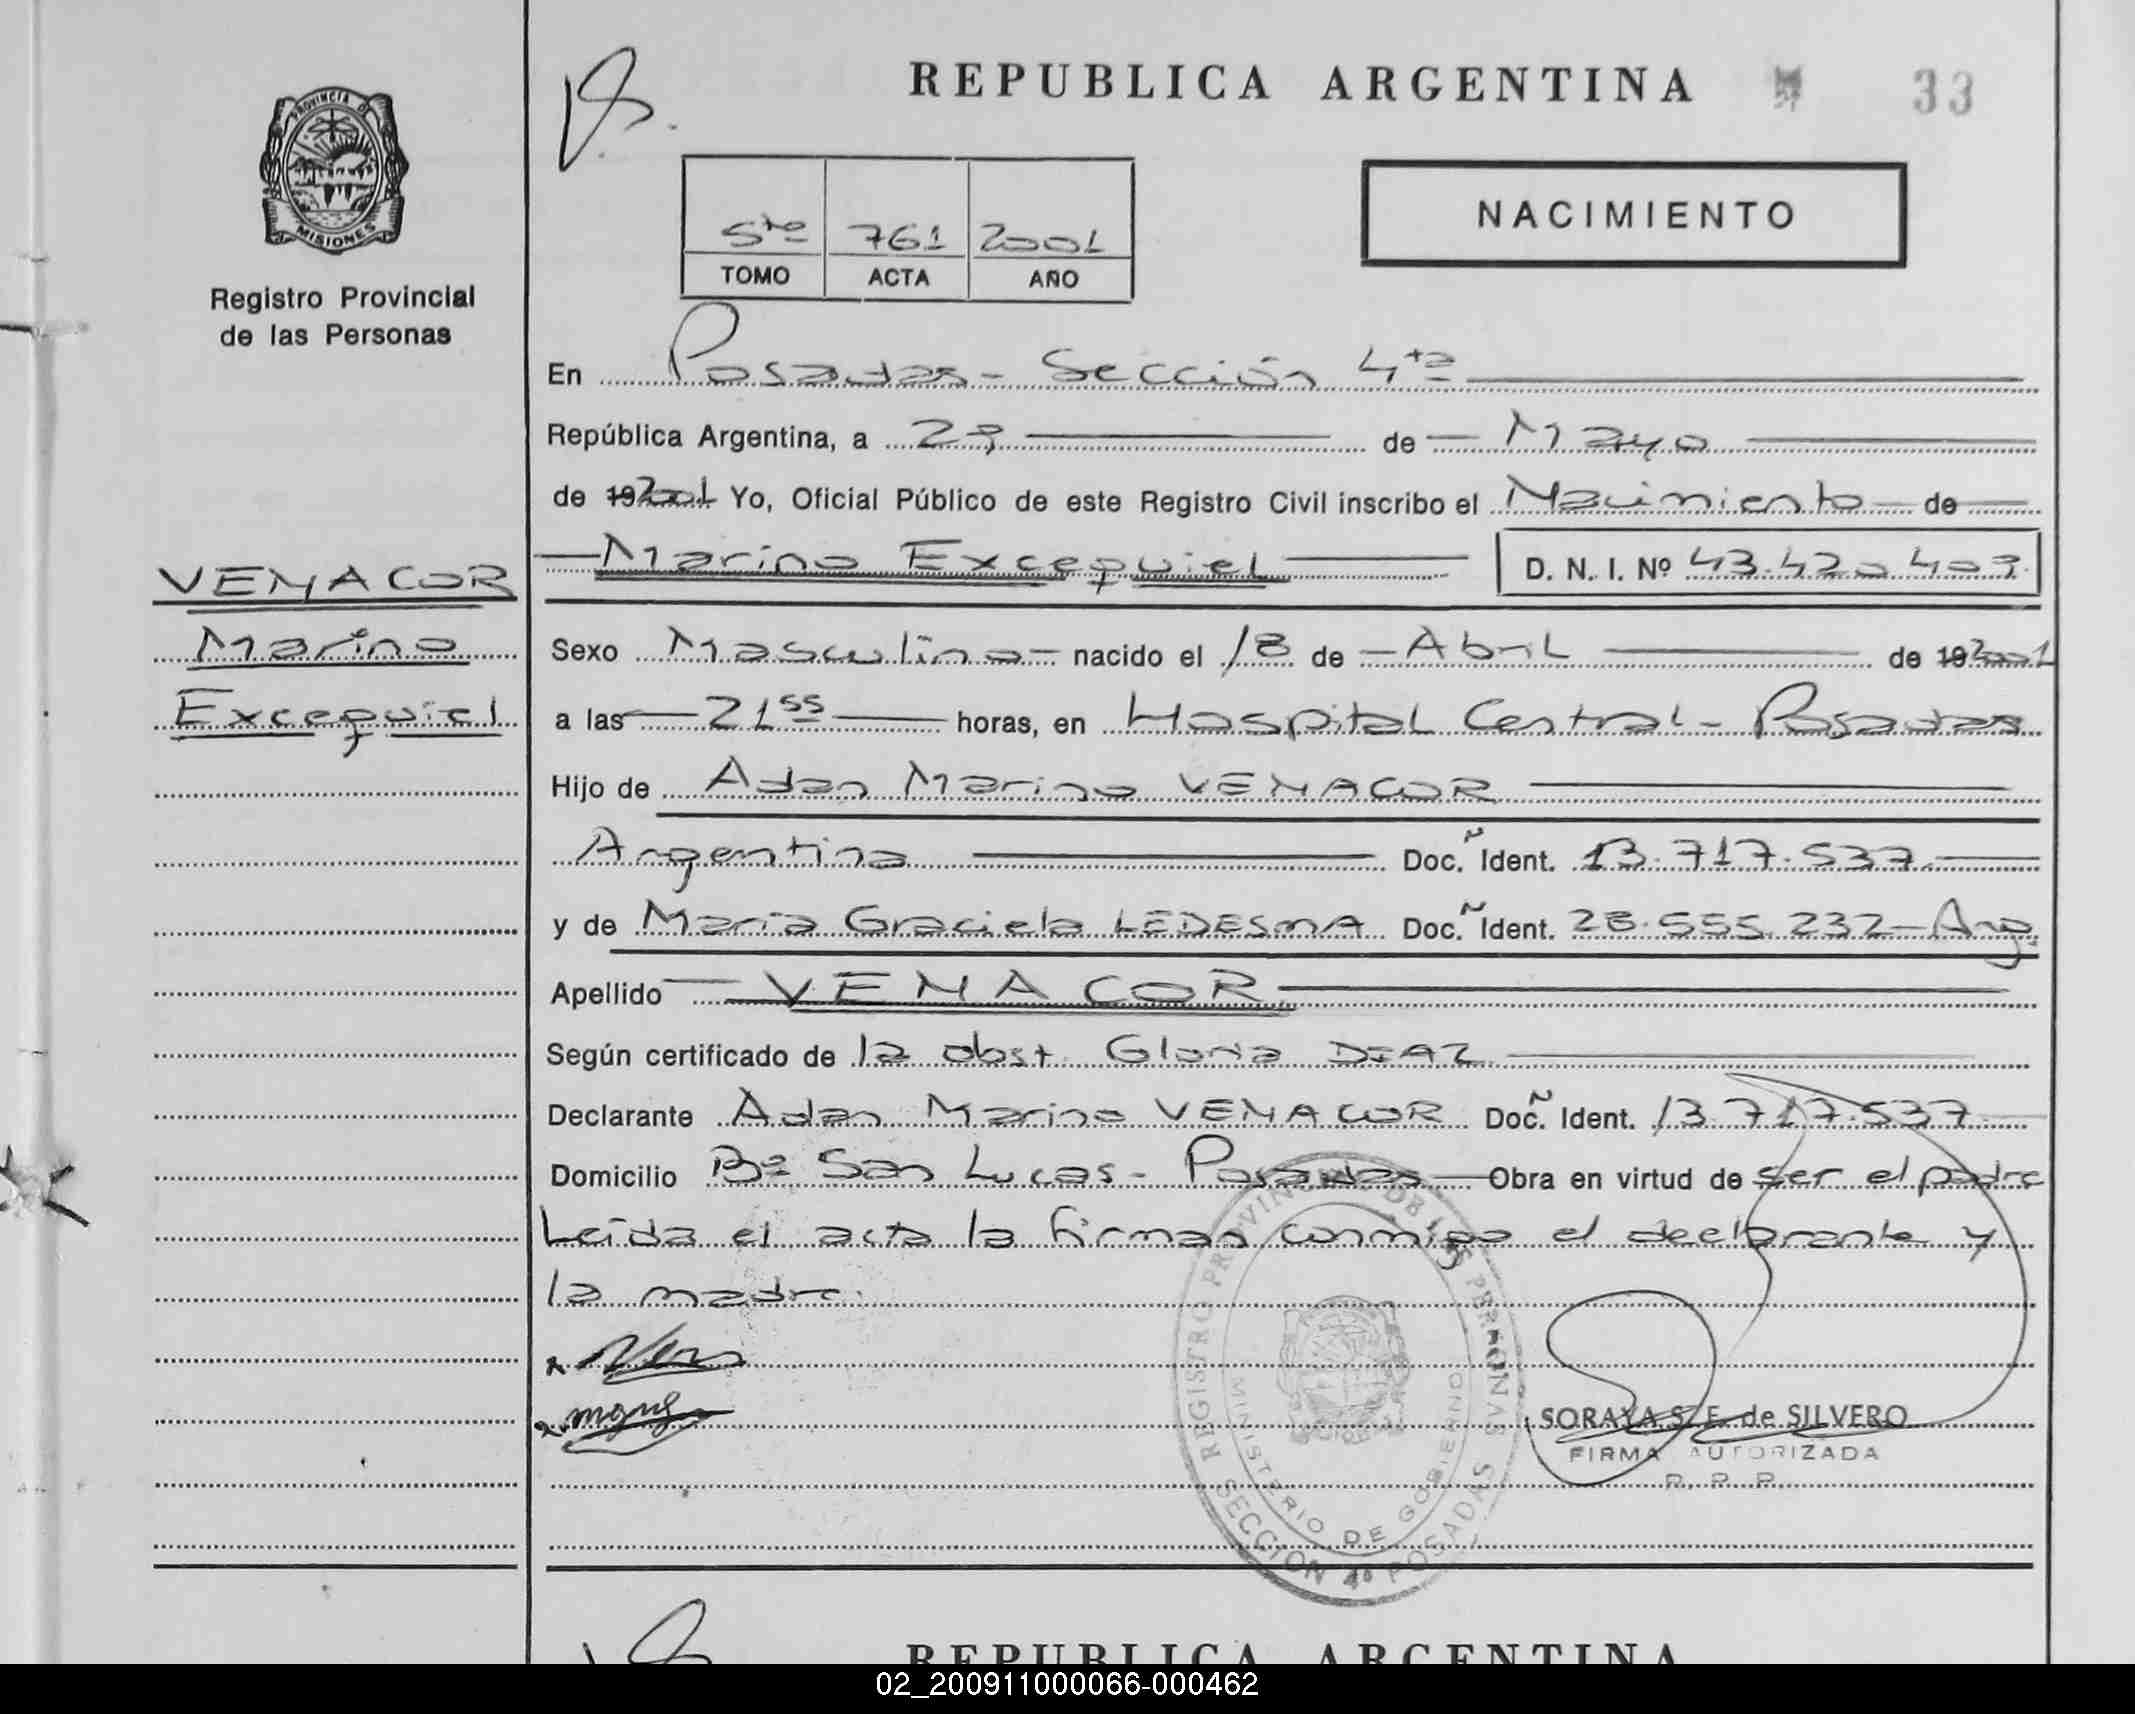 REPUBLICA ARGENTINA
33
PROVINCIA DE
MISIONES
Registro Provincial
de las Personas
NACIMIENTO
5to 761 2001
TOMO ACTA AÑO
En Posadas - Sección 4ta
República Argentina, a 29 de Mayo
de 19 2001 Yo, Oficial Público de este Registro Civil inscribo el Nacimiento de
Marino Excequiel D. N. I. Nº 43.420.409
VENACOR
Marino
Excequiel
Sexo Masculino nacido el 18 de Abril de 19 2001
a las 21 55 horas, en Hospital Central - Posadas
Hijo de Adan Marino VENACOR
Argentina Doc. Ident. 13.717.537
y de Maria Graciela LEDESMA Doc. Ident. 28.555.232 - Arg.
Apellido VENACOR
Según certificado de la obst. Gloria DIAZ
Declarante Adan Marino VENACOR Doc. Ident. 13.717.537
Domicilio Bº San Lucas - Posadas Obra en virtud de ser el padre
Leida el acta la firman conmigo el declarante y
la madre.
REGISTRO PROVINCIAL DE LAS PERSONAS
MINISTERIO DE GOBIERNO
SECCION 4ª POSADAS
SORAYA S. E. de SILVERO
FIRMA AUTORIZADA
R. P. P.
REPUBLICA ARGENTINA
02_200911000066-000462